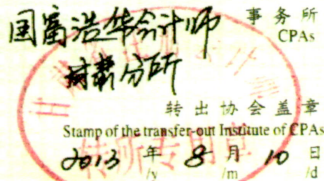 国富浩华会计师 事务所
CPAs
甘肃分所
转出协会盖章
Stamp of the transfer-out Institute of CPAs
2013 年 8 月 10 日
/y /m /d
转所专用章